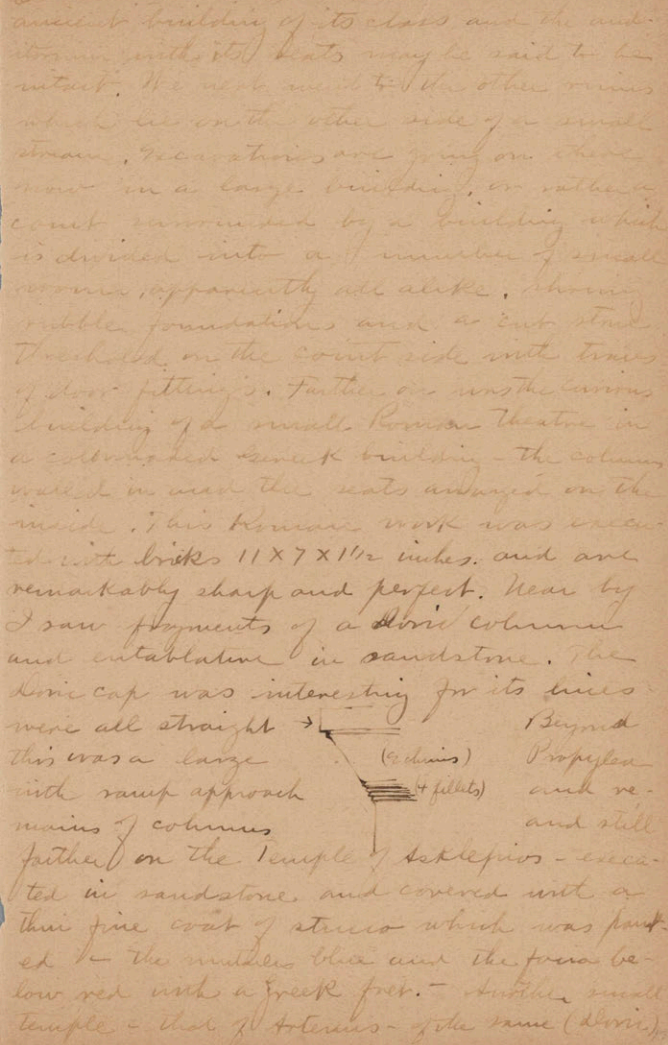 ancient building of its class and the aud-
itorium with its seats may be said to be
intact. We next went to the other ruins
which lie on the other side of a small
stream. Excavations are going on there
now in a large building, or rather a
court surrounded by a building which
is divided into a number of small
rooms, apparently all alike, showing
rubble foundations and a cut stone
threshold on the court side with traces
of door fittings. Farther on was the curious
building of a small Roman theatre in
a colonnaded Greek building - the columns
walled in and the seats arranged on the
inside. This Roman work was execu-
ted with bricks 11 X 7 X 1 1/2 inches. and are
remarkably sharp and perfect. Near by
I saw fragments of a doric column
and entablature in sandstone. The
doric cap was interesting for its lines
were all straight → Beyond
this was a large (echinus) Propylea
with ramp approach (4 fillets) and re-
mains of columns and still
farther on the Temple of Asklepios - execu-
ted in sandstone and covered with a
thin fine coat of stucco which was paint-
ed - the mutules blue and the be-
low red with a greek fret. - Another small
temple - that of Artemis - of the same (doric)